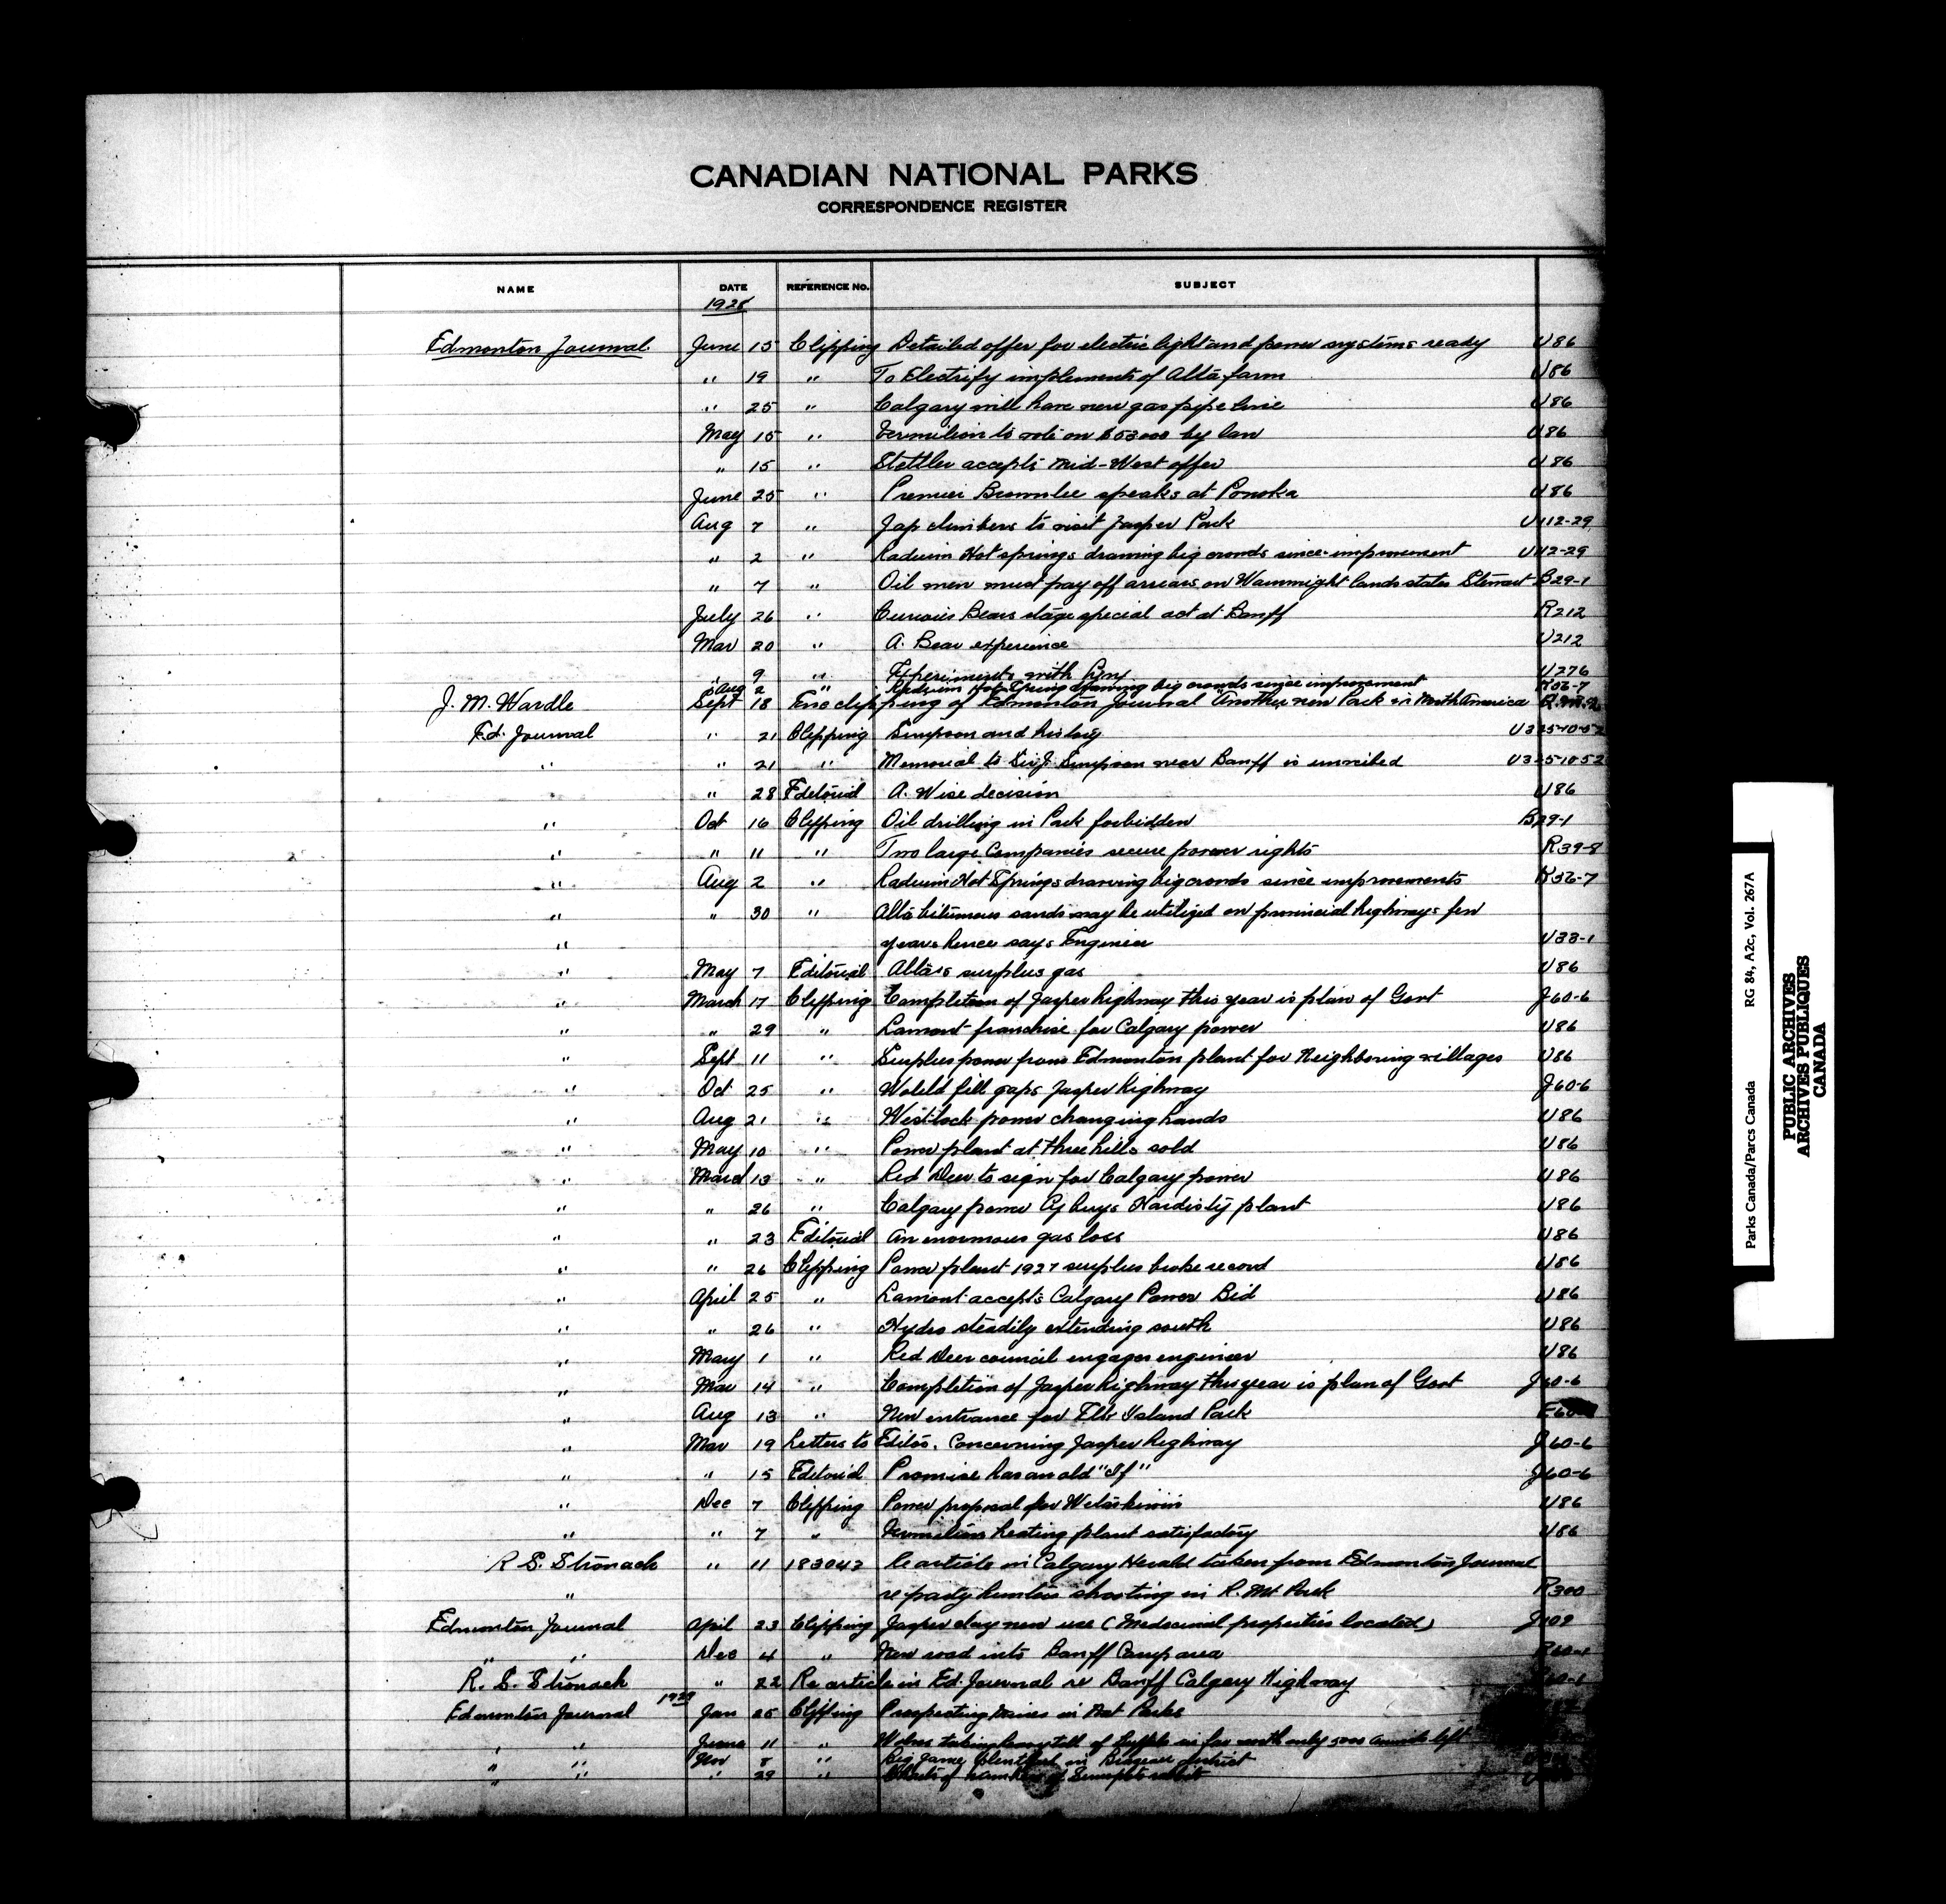 CANADIAN NATIONAL PARKS
CORRESPONDENCE REGISTER
NAME DATE REFERENCE No. SUBJECT
1928
Edmonton Journal June 15 Clipping Detailed offer for electric light and power systems ready U86
" 19 " To Electrify implements of Alta farm U86
" 25 " Calgary will have new gas pipe line U86
May 15 " Vermilion to vote on $53000 by law U86
" 15 " Stettler accepts Mid-West offer U86
June 25 " Premier Brownlee speaks at Ponoka U86
Aug 7 " Jap climbers to visit Jasper Park U112-29
" 2 " Radium Hot springs drawing big crowds since improvement U112-29
" 7 " Oil men must pay off arrears on Wainwright lands states Stewart B29-1
July 26 " Curious Bears stage special act at Banff R212
Mar 20 " A. Bear experience U212
" 9 " Experiments with U276
Aug 2 " Radium Hot Spring drawing big crowds since improvement K36-7
J. M. Wardle Sept 18 Enc clipping of Edmonton Journal "Another new Park in North America
Ed. Journal " 21 Clipping Simpson and history U325-10-52
" " 21 " Memorial to Sir J. Simpson near Banff is unveiled U325-10-52
" 28 Editorial A. Wise decision U86
" Oct 16 Clipping Oil drilling in Park forbidden B29-1
" " 11 " Two large Companies secure power rights R39-8
" Aug 2 " Radium Hot Springs drawing big crowds since improvements K36-7
" " 30 " Alta bitumous sands may be utilized on provincial highways few
" years hence says Engineer U33-1
" May 7 Editorial Alta's surplus gas U86
" March 17 Clipping Completion of Jasper highway this year is plan of Govt J60-6
" " 29 " Lamont franchise for Calgary power U86
" Sept 11 " Surplus power from Edmonton plant for Neighboring villages U86
" Oct 25 " Would fill gaps Jasper Highway J60-6
" Aug 21 " Westlock power changing hands U86
" May 10 " Power plant at three hills sold U86
" March 13 " Red Deer to sign for Calgary power U86
" " 26 " Calgary power Cy buys Hardisty plant U86
" " 23 Editorial An enormous gas loss U86
" " 26 Clipping Power plant 1927 surplus broke record U86
" April 25 " Lamont accepts Calgary Power Bid U86
" " 26 " Hydro steadily extending south U86
" May 1 " Red Deer council engages engineer U86
" Mar 14 " Completion of Jasper highway this year is plan of Govt J60-6
" Aug 13 " New entrance for Elk Island Park
" Mar 19 Letters to Editor. Concerning Jasper highway J60-6
" " 15 Editorial Promise has an old "If" J60-6
" Dec 7 Clipping Power proposal for Wetaskiwin U86
" " 7 " Vermilion heating plant satisfactory U86
R S. Stronach " 11 183042 Re article in Calgary Herald taken from Edmonton Journal
" re party hunters shooting in R. Mt Park R300
Edmonton Journal April 23 Clipping Jasper clay new use (Medecinal properties located) J109
" " Dec 4 " New road into Banff Camp area
R. S. Stronach " 22 Re article in Ed. Journal re Banff Calgary Highway
1929
Edmonton Journal Jan 25 Clipping Prospecting in Nat Parks
" " June 11 " Wolves taking heavy toll of buffalo in far north only 5000 left
" " Nov 8 " Big game plentiful in district
" " " 29 "
Parks Canada/Parcs Canada RG 84, A2c, Vol. 267A
PUBLIC ARCHIVES
ARCHIVES PUBLIQUES
CANADA